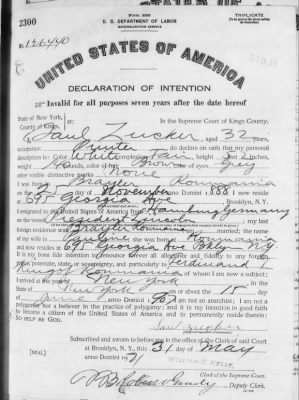 Form 2203
TRIPLICATE
2300
U. S. DEPARTMENT OF LABOR
NATURALIZATION SERVICE
No. 126440
UNITED STATES OF AMERICA
DECLARATION OF INTENTION
Invalid for all purposes seven years after the date hereof
State of New York,
County of Kings,
ss:
In the Supreme Court of Kings County.
I, Paul Zucker, aged 32 years,
occupation Printer, do declare on oath that my personal
description is: Color White, complexion Fair, height
pounds, color of hair Brown, color of eyes Grey
other visible distinctive marks None
I was born in Brayler Roumania
on the 25 day of November, anno Domini 1888; I now reside
at 695 Georgia Ave, Brooklyn, N.Y.
I emigrated to the United States of America from Hamburg Germany
on the vessel President Lincoln; my last
foreign residence was Brayler Roumania; the name
of my wife is Pauline; she was born Roumania
and now resides at 695 Georgia Ave Bklyn NY
It is my bona fide intention to renounce forever all allegiance and fidelity to any foreign
prince, potentate, state, or sovereignty, and particularly to Ferdinand
King of Roumania, of whom I am now a subject;
I arrived at the port of New York, in the
State of New York, on or about the 15 day
of June, anno Domini 1907; I am not an anarchist; I am not a
polygamist nor a believer in the practice of polygamy; and it is my intention in good faith
to become a citizen of the United States of America and to permanently reside therein:
SO HELP ME GOD.
Paul Zucker
Subscribed and sworn to before me in the office of the Clerk of said Court
at Brooklyn, N. Y., this 31 day of May
[SEAL]
anno Domini 1921
WILLIAM E. KELLY
Clerk of the Supreme Court.
Deputy Clerk.